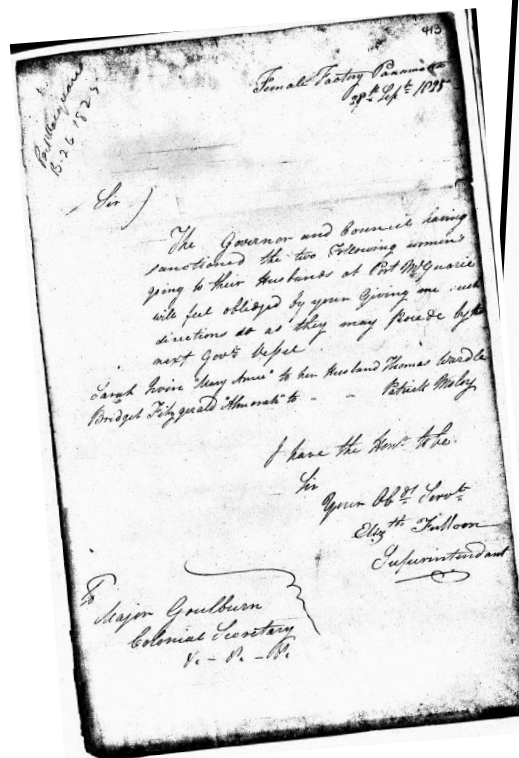 413
Port Macquarie
B. 26 1825
Female Factory Parramatta
28th Sept. 1825
Sir
The Governor and Council having
sanctioned the two Following women
going to their Husbands at Port McQuarie
will feel obledged by your Giving me such
directions so as they may Procede by the
next Govt. Vessel
Sarah Irvine "Mary Anne" to her Husband Thomas Wardle
Bridget Fitzgerald "Almorah" to - - Patrick
I have the Honr. to be
Sir
Your Obdt. Servt.
Elizth Fulloon
Superintendant
To
Major Goulburn
Colonial Secretary
&. - &. - &.